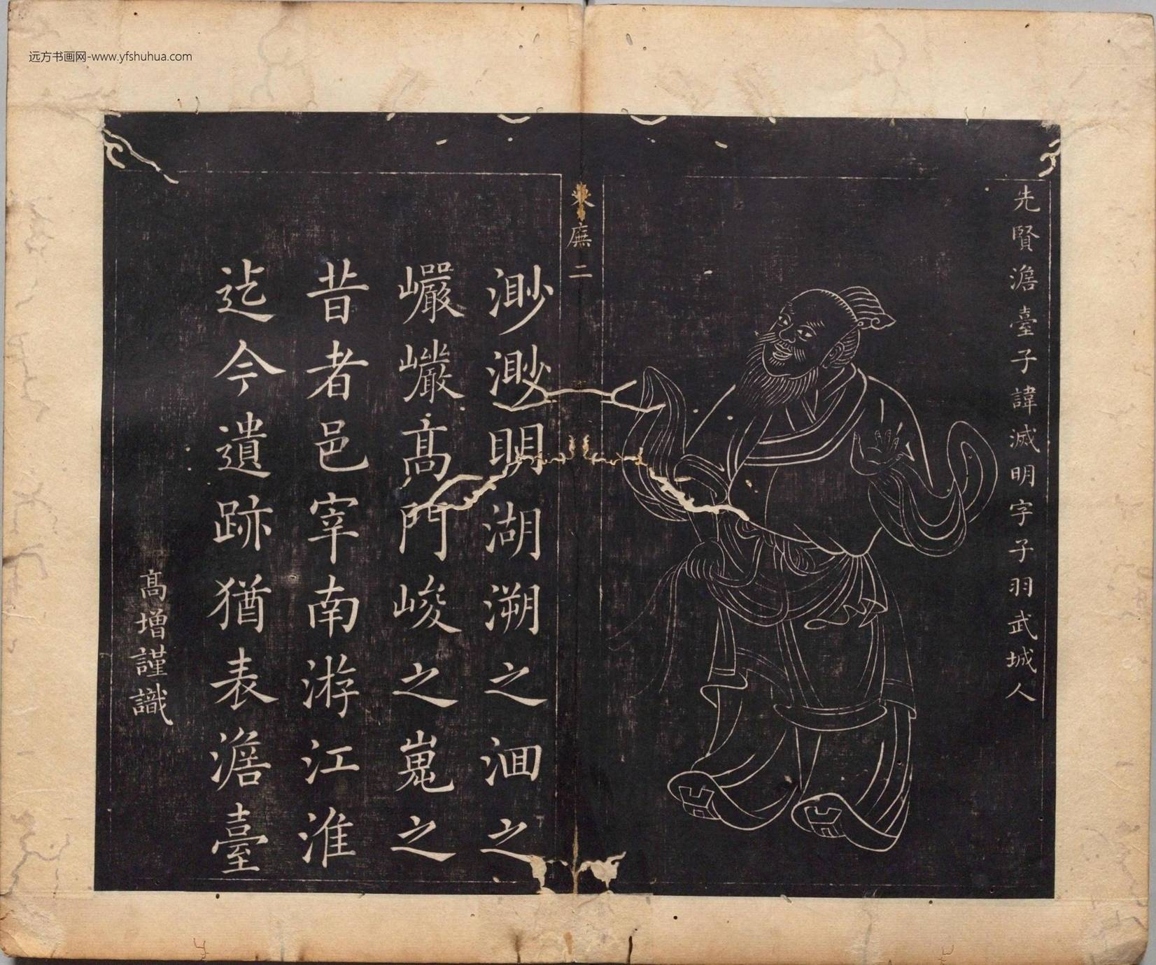 远方书画网-www.yfshuhua.com
先賢澹臺子諱滅明字子羽武城人
東廡二
渺渺明湖溯之洄之
巖巖高門峻之嵬之
昔者邑宰南游江淮
迄今遺跡猶表澹臺
高增謹識